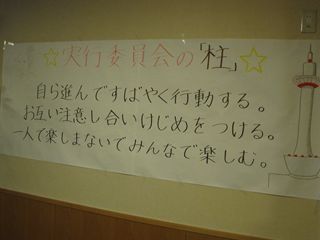 ☆実行委員会の「柱」☆
自ら進んですばやく行動する。
お互い注意し合いけじめをつける。
一人で楽しまないでみんなで楽しむ。